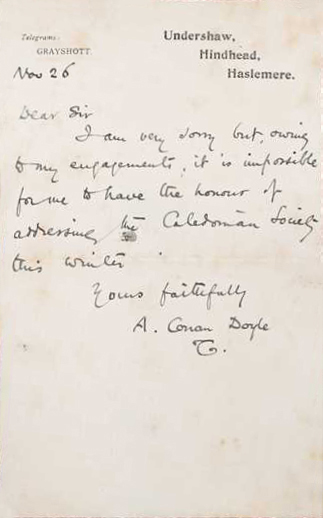 Telegrams:
GRAYSHOTT.
Undershaw,
Hindhead,
Haslemere.
Nov 26
Dear Sir
I am very sorry but, owing
to my engagements, it is impossible
for me to have the honour of
addressing the Caledonian Society
this winter
Yours faithfully
A. Conan Doyle